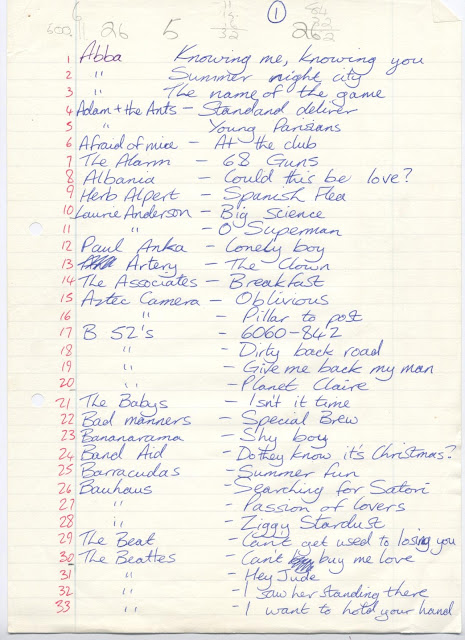 26 5 ① 262
600
1 Abba Knowing me, knowing you
2 " Summer night city
3 " The name of the game
4 Adam + the Ants - Stand and deliver
5 " Young Parisians
6 Afraid of mice - At the club
7 The Alarm - 68 Guns
8 Albania - Could this be love?
9 Herb Alpert - Spanish Flea
10 Laurie Anderson - Big science
11 " - O Superman
12 Paul Anka - Lonely boy
13 Artery - The Clown
14 The Associates - Breakfast
15 Aztec Camera - Oblivious
16 " - Pillar to post
17 B 52's - 6060-842
18 " - Dirty back road
19 " - Give me back my man
20 " - Planet Claire
21 The Babys - Isn't it time
22 Bad manners - Special Brew
23 Bananarama - Shy boy
24 Band Aid - Do they know it's Christmas?
25 Barracudas - Summer fun
26 Bauhaus - Searching for Satori
27 " - Passion of lovers
28 " - Ziggy Stardust
29 The Beat - Can't get used to losing you
30 The Beatles - Can't buy me love
31 " - Hey Jude
32 " - I saw her standing there
33 " - I want to hold your hand